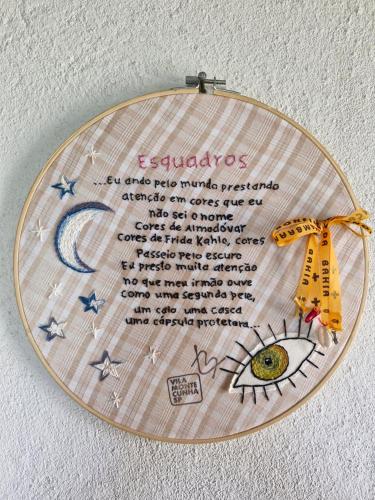 Esquadros
...Eu ando pelo mundo prestando
atenção em cores que eu
não sei o nome
Cores de Almodóvar
Cores de Frida Kahlo, cores
Passeio pelo escuro
Eu presto muita atenção
no que meu irmão ouve
Como uma segunda pele,
um calo, uma casca
uma cápsula protetora...
BAHIA
BAHIA
VILA
MONTE
CUNHA
SP